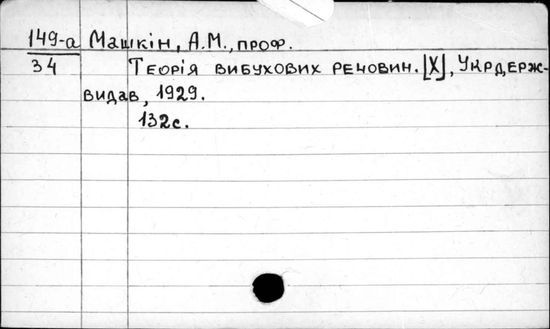 149-а Машкін, А.М., проф.
34 Теорія вибухових речовин. [Х], Укрдерж-
видав, 1929.
132с.